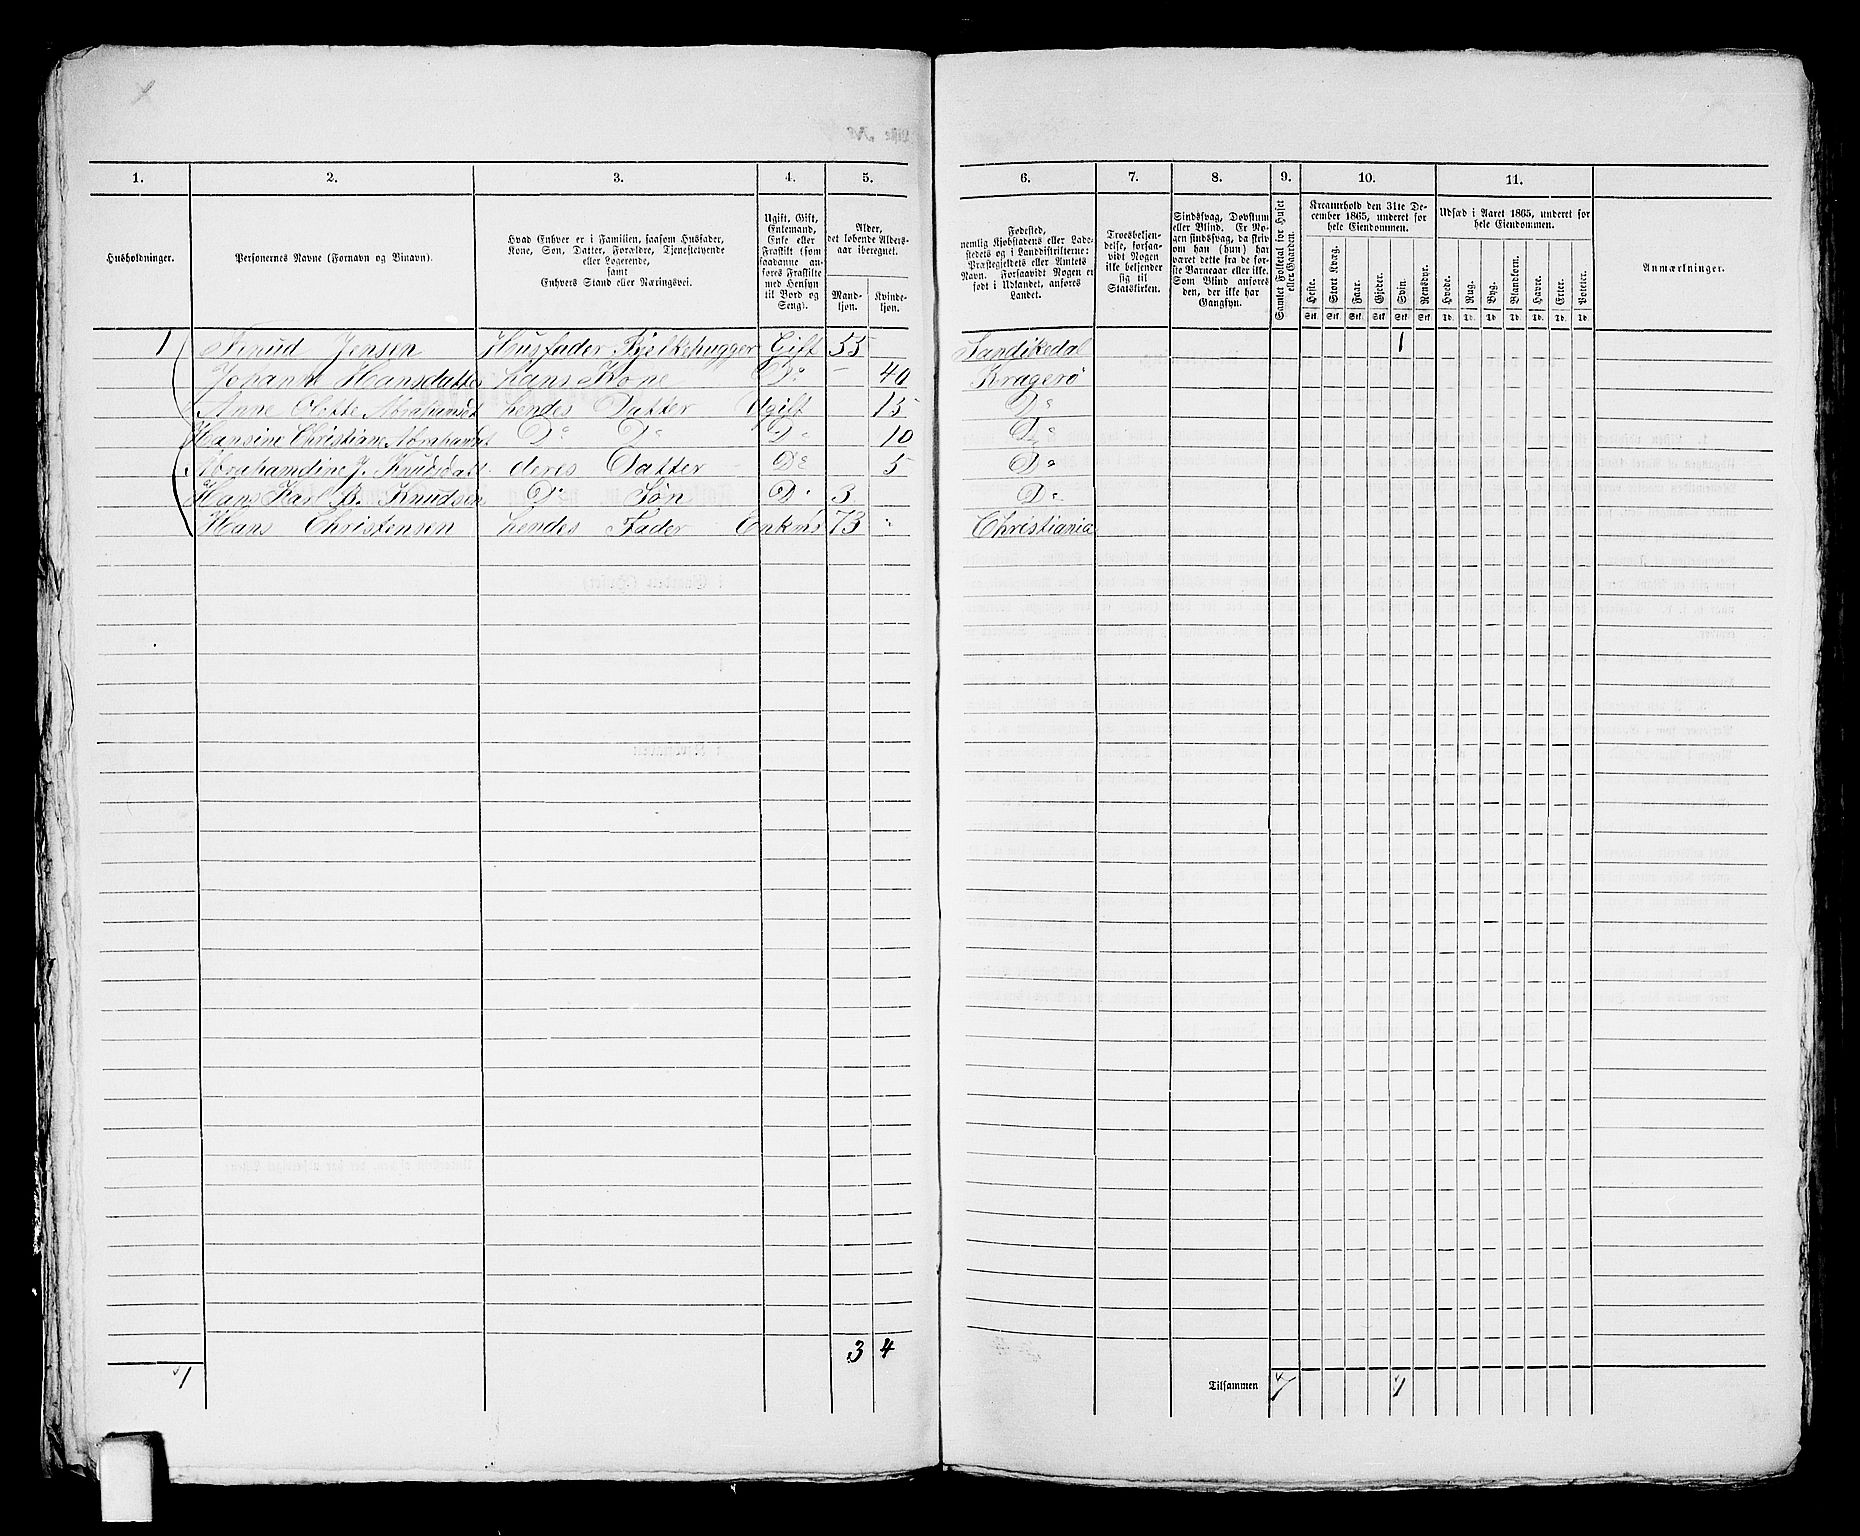 1. 2. 3. 4. 5. 6. 7. 8. 9. 10. 11.
Husholdninger.
Personernes Navne (Fornavn og Binavn).
Hvad Enhver er i Familien, saasom Husfader,
Kone, Søn, Datter, Forældre, Tjenestetyende
eller Logerende,
samt
Enhvers Stand eller Næringsvei.
Ugift, Gift,
Enkemand,
Enke eller
Fraskilt (som
saadanne an-
føres Fraskilte
med Hensyn
til Bord og
Seng).
Alder,
det løbende Alders-
aar iberegnet.
Mand-
kjøn.
Kvinde-
kjøn.
Fødested,
nemlig Kjøbstadens eller Lade-
stedets og i Landdistrikterne:
Præstegjeldets eller Amtets
Navn. Forsaavidt Nogen er
født i Udlandet, anføres
Landet.
Troesbekjen-
delse, forsaa-
vidt Nogen
ikke bekjender
sig til
Statskirken.
Sindssvag, Døvstum
eller Blind. Er No-
gen sindssvag, da skriv
om han (hun) har
været dette fra de før-
ste Barneaar eller ikke.
Som Blind anføres
den, der ikke har
Gangsyn.
Samlet Folketal for Huset
eller Gaarden.
Kreaturhold den 31te De-
cember 1865, underet for
hele Eiendommen.
Heste. Stort Kvæg. Faar. Gjeder. Svin. Rensdyr.
Stk. Stk. Stk. Stk. Stk. Stk.
Udsæd i Aaret 1865, underet for
hele Eiendommen.
Hvede. Rug. Byg. Blandkorn. Havre. Erter. Poteter.
Td. Td. Td. Td. Td. Td. Td.
Anmærkninger.
1 Knud Jensen Husfader Bjelkehugger Gift 55 Sandikedal 1
Johanne Hansdatter hans Kone Do - 40 Kragerø
Anne Olette Abrahamsdt hendes Datter Ugift 15 Do
Hansine Christiane Abrahamsdt Do Do Do 10 Do
Abrahamdine J. Knudsdatt deres Datter Do 5 Do
Hans Karl B. Knudsen Do Søn Do 3 Do
Hans Christensen hendes Fader Enkm 73 " Christiania
3 4
1 Tilsammen 7 1